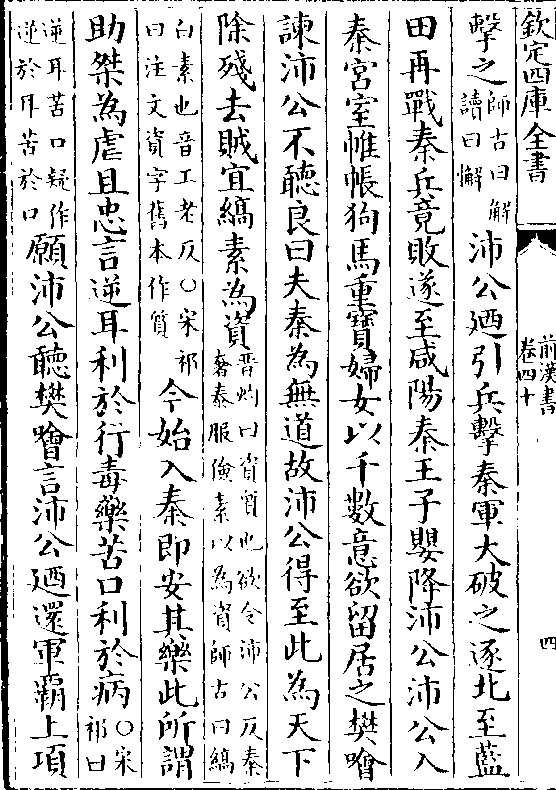 欽定四庫全書
前漢書
卷四十
四
擊之師古曰解讀曰懈沛公廼引兵擊秦軍大破之逐北至藍
田再戰秦兵竟敗遂至咸陽秦王子嬰降沛公沛公入
秦宮室帷帳狗馬重寶婦女以千數意欲留居之樊噲
諫沛公不聽良曰夫秦為無道故沛公得至此為天下
除殘去賊宜縞素為資晋灼曰資質也欲令沛公反秦奢泰服儉素以為資師古曰縞
白素也音工老反○宋祁曰注文資字舊本作質今始入秦即安其樂此所謂
助桀為虐且忠言逆耳利於行毒藥苦口利於病○宋祁曰
逆耳苦口疑作逆於耳苦於口願沛公聽樊噲言沛公廼還軍霸上項